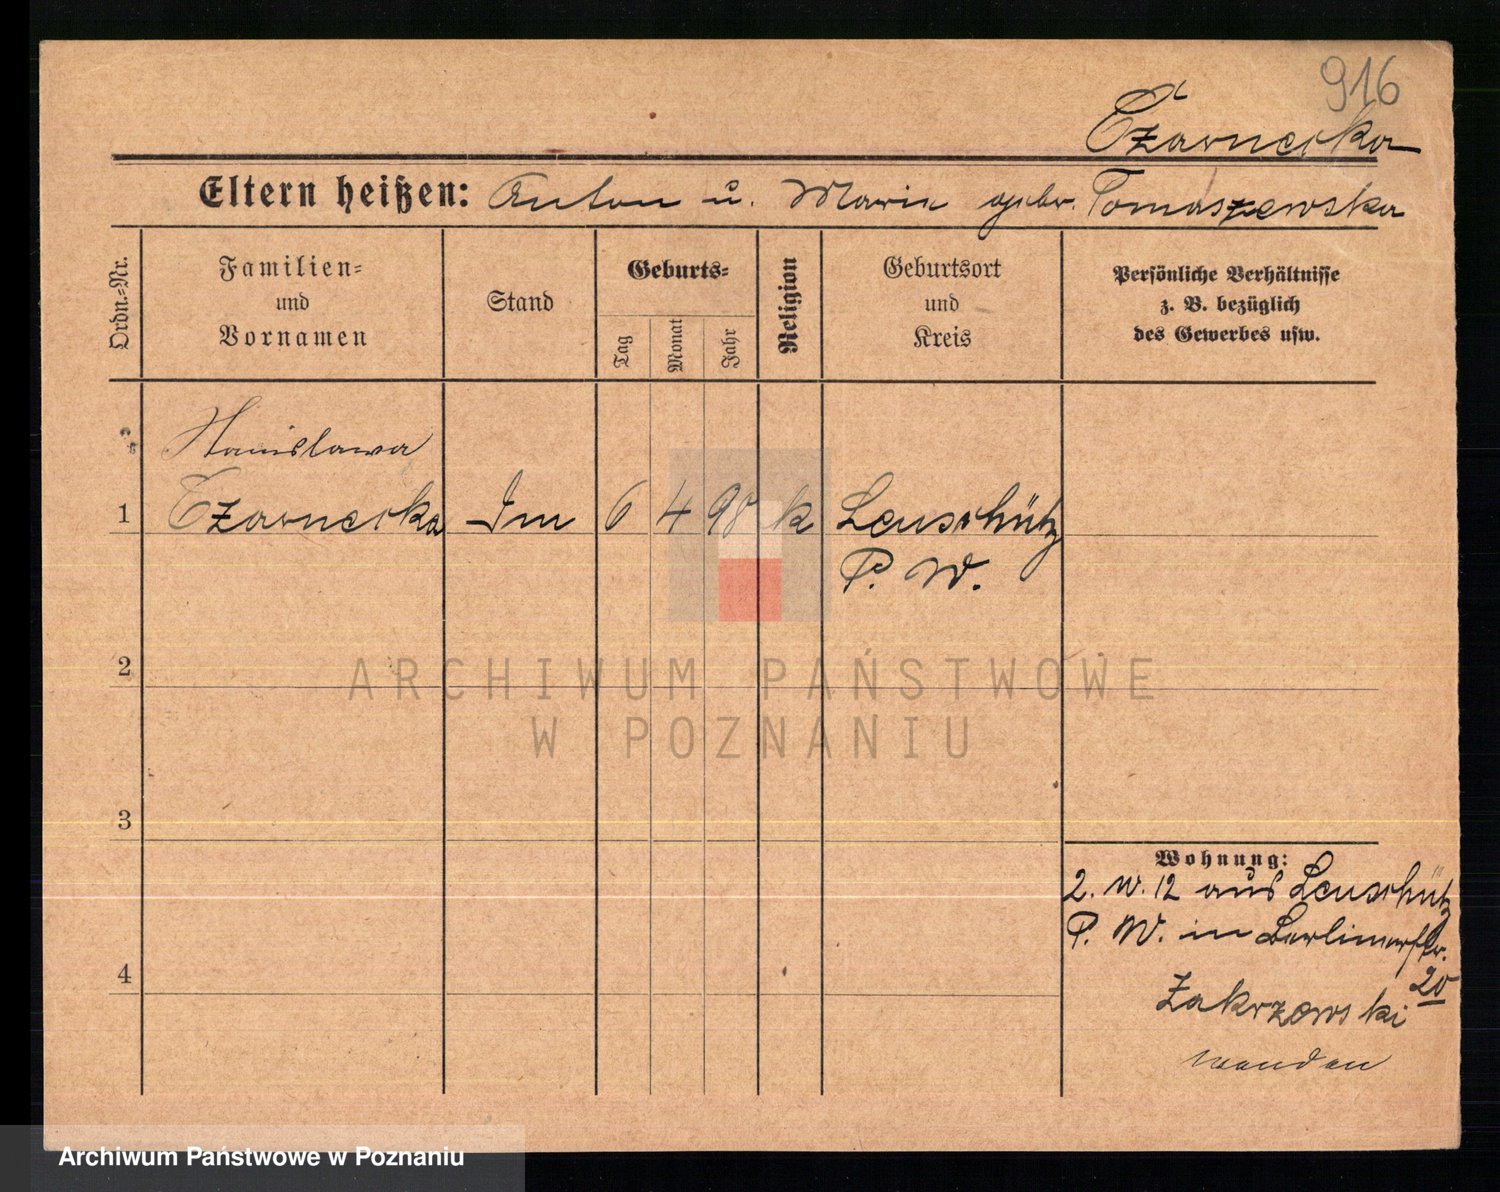 916
Czarnecka
Eltern heißen: Anton u. Marie gebr. Tomaszewska
Ordn.-Nr.
Familien-
und
Vornamen
Stand
Geburts-
Tag
Monat
Jahr
Religion
Geburtsort
und
Kreis
Persönliche Verhältnisse
z. B. bezüglich
des Gewerbes usw.
Stanislawa
1 Czarnecka 6 4 98 k Leuschütz
P. W.
2
3
4
Wohnung:
2. 12 aus Leuschütz
P. W. in Berlinerstr.
20
Zakrzewski
ARCHIWUM PAŃSTWOWE
W POZNANIU
Archiwum Państwowe w Poznaniu